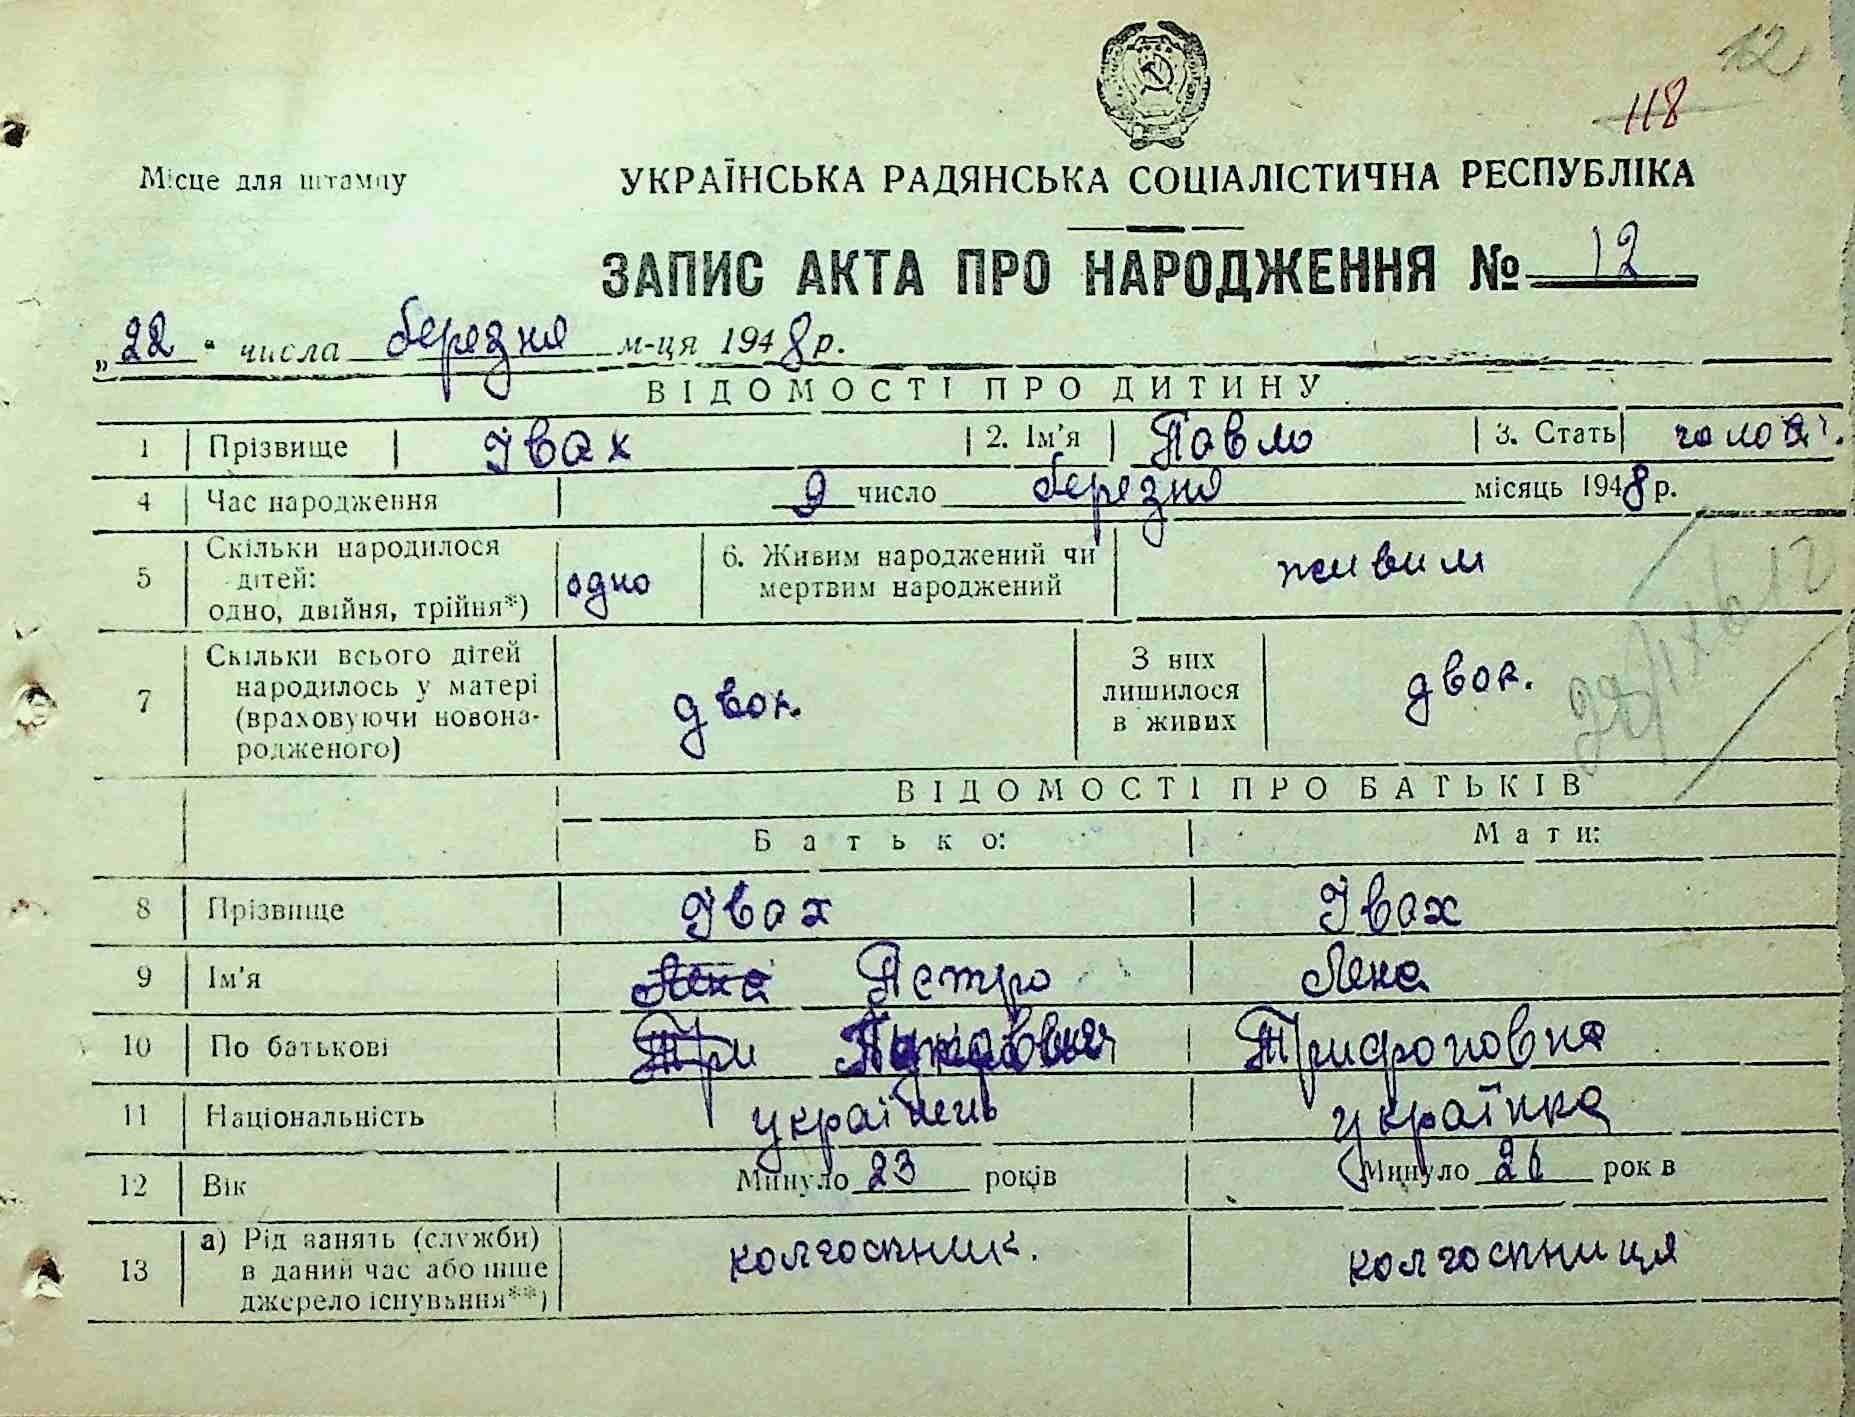 12
118
Місце для штампу
УКРАЇНСЬКА РАДЯНСЬКА СОЦІАЛІСТИЧНА РЕСПУБЛІКА
ЗАПИС АКТА ПРО НАРОДЖЕННЯ № 12
„22“ числа березня м-ця 1948 р.
ВІДОМОСТІ ПРО ДИТИНУ
1 Прізвище Івах 2. Ім'я Павло 3. Стать чолов.
4 Час народження 9 число березня місяць 1948 р.
5 Скільки народилося дітей: одно, двійня, трійня*) одно 6. Живим народжений чи мертвим народжений живим
7 Скільки всього дітей народилось у матері (враховуючи новонародженого) двоє. З них лишилося в живих двоє.
ВІДОМОСТІ ПРО БАТЬКІВ
Батько: Мати:
8 Прізвище Івах Івах
9 Ім'я Лена Петро Лена
10 По батькові Три Трифоновна
11 Національність українець українка
12 Вік Минуло 23 років Минуло 26 рок в
13 а) Рід занять (служби) в даний час або інше джерело існування**) колгоспник. колгоспниця